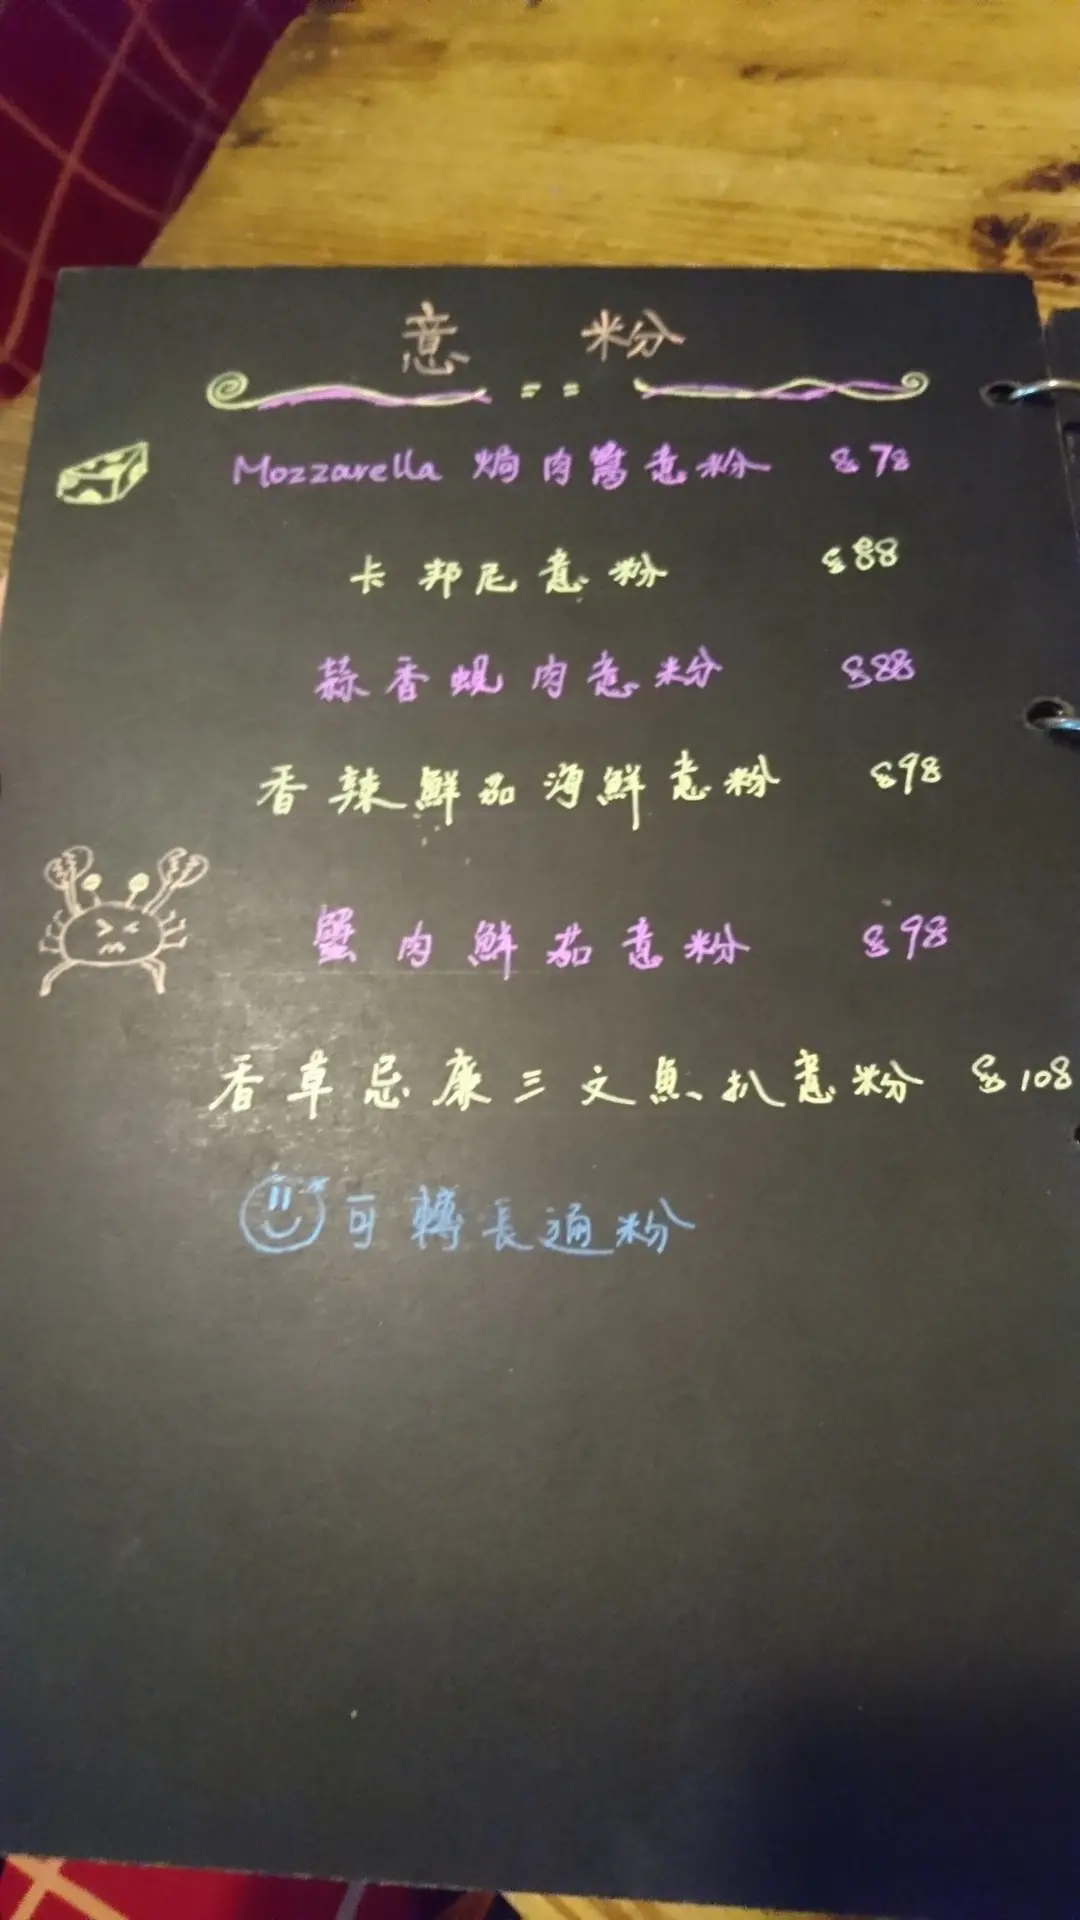 意粉
Mozzarella 焗肉醬意粉 $78
卡邦尼意粉 $88
蒜香蜆肉意粉 $88
香辣鮮茄海鮮意粉 $98
蟹肉鮮茄意粉 $98
香草忌廉三文魚扒意粉 $108
可轉長通粉